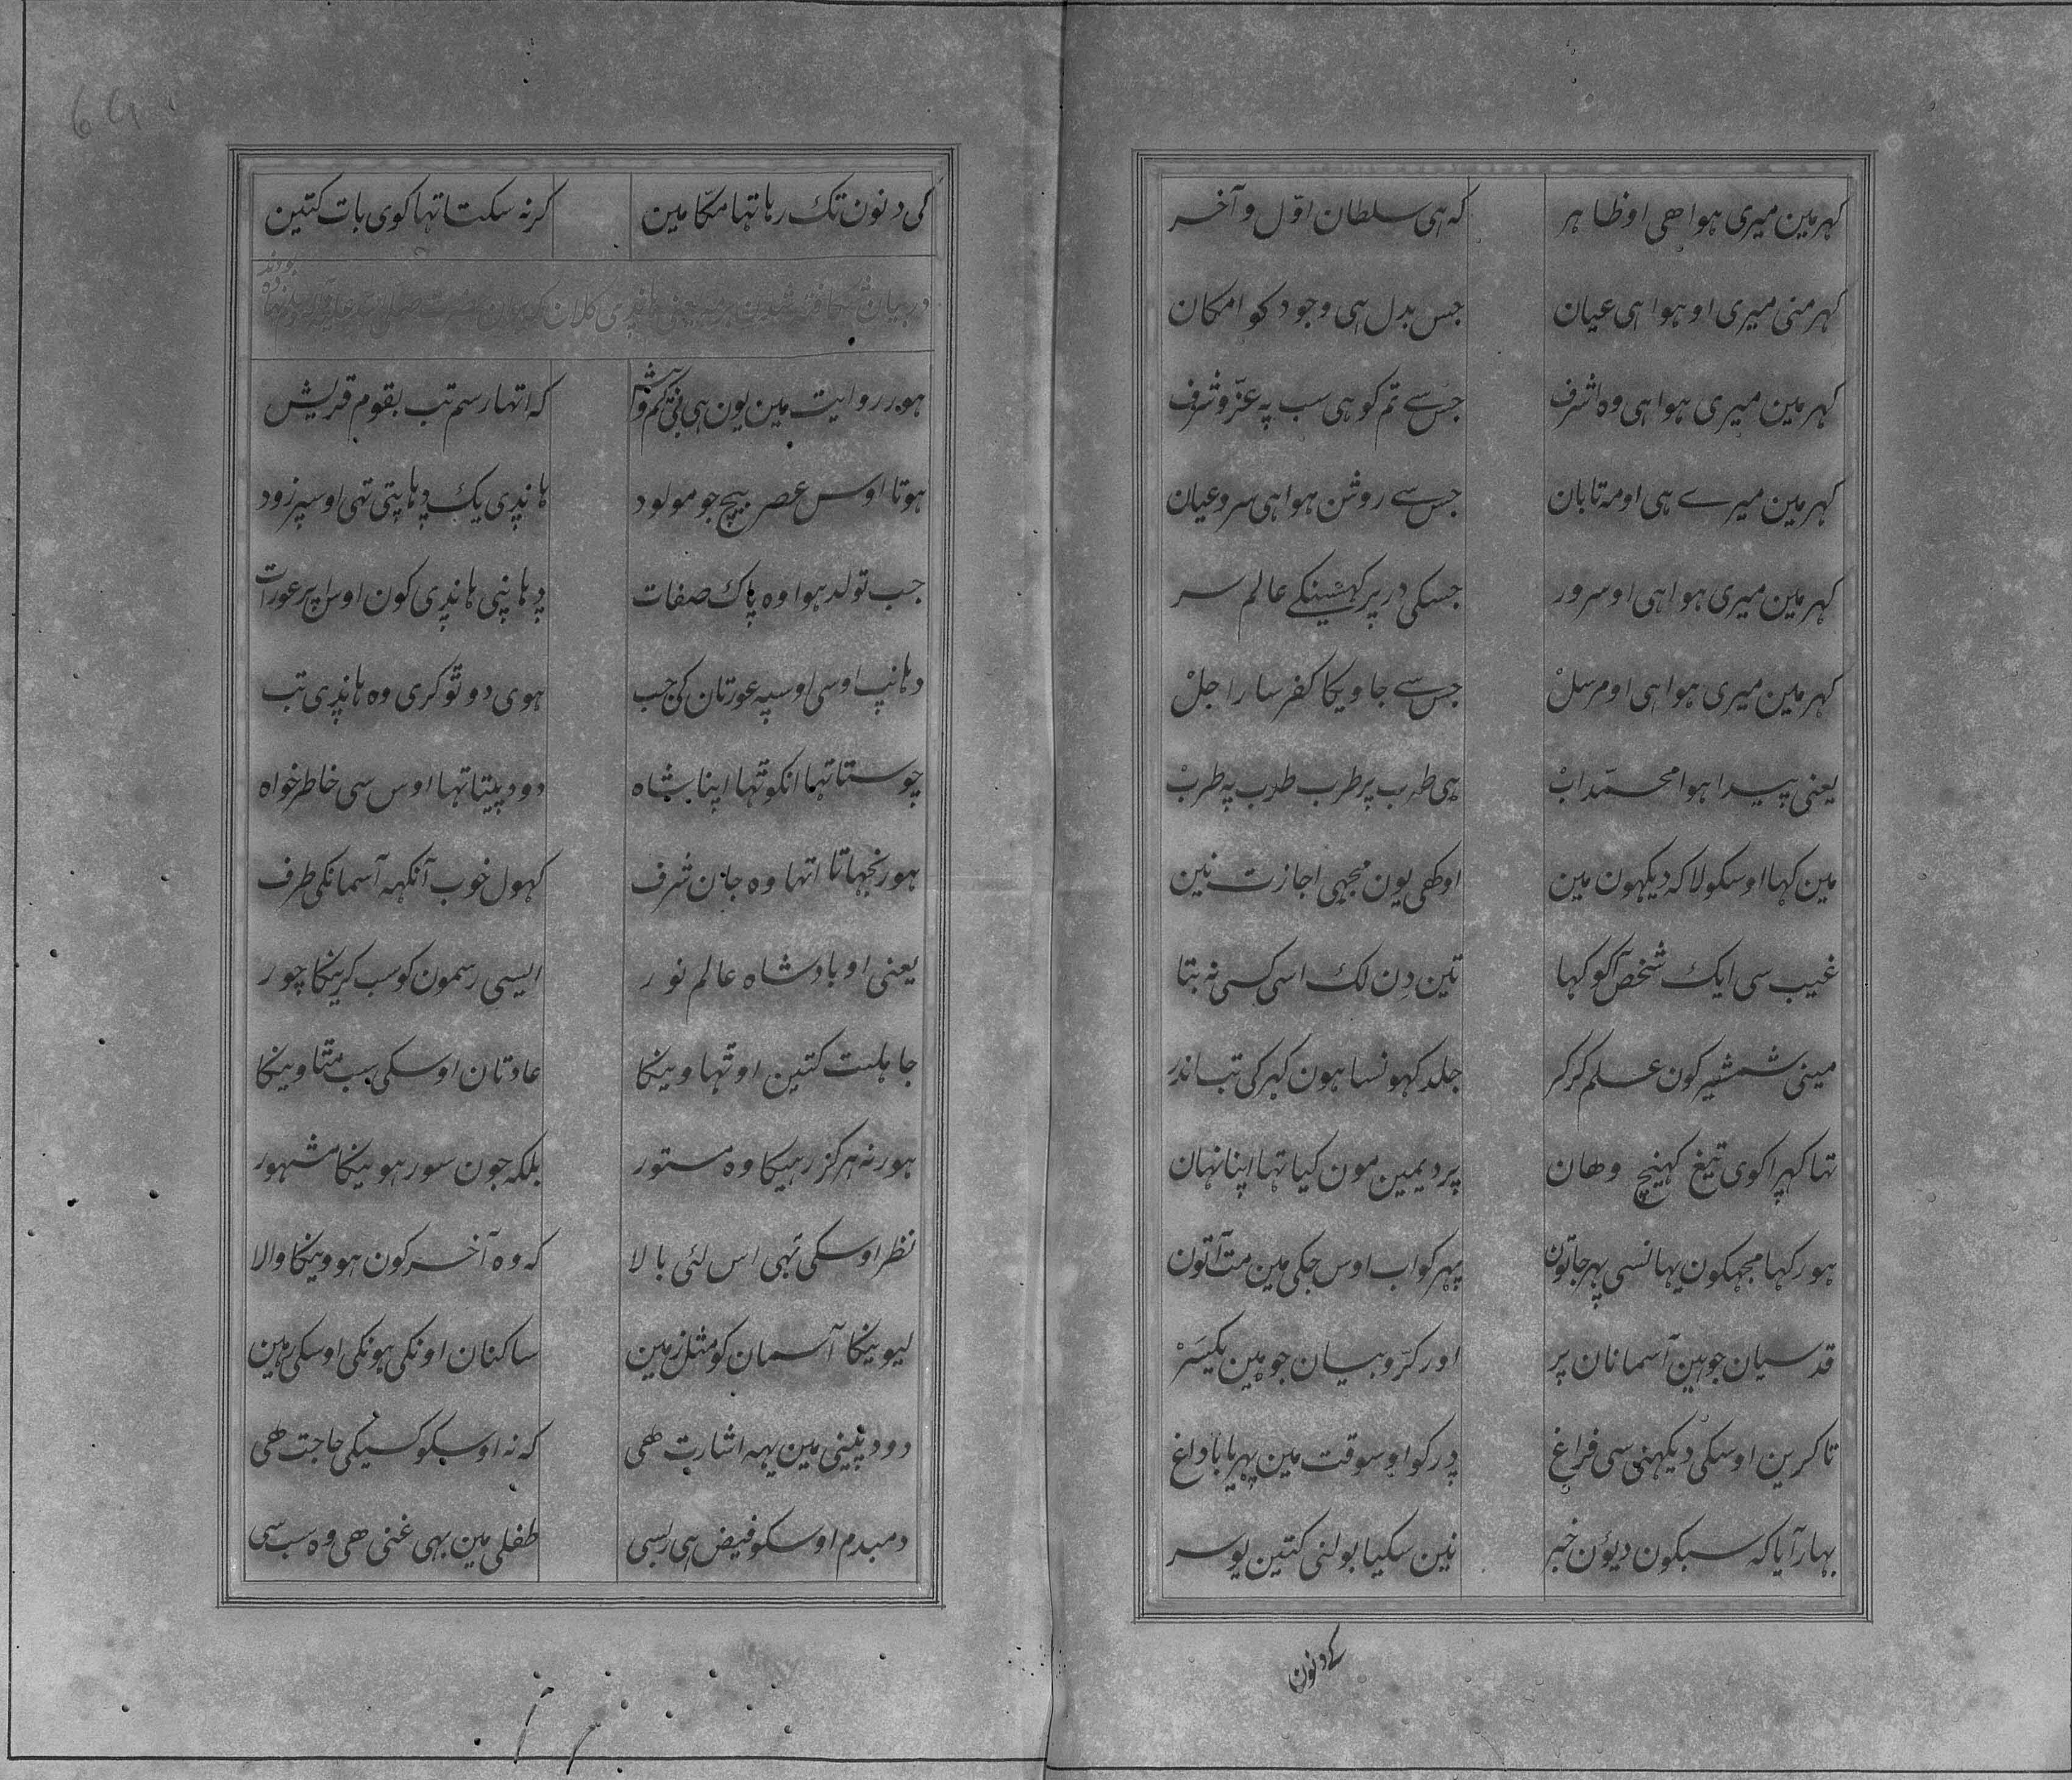 کہر مین میری ہوا ھی او ظاہر کہ ہی سلطان اوّل و آخر
کہر منی میری او ہوا ہی عیان جس بدل ہی وجود کو امکان
کہر مین میری ہوا ہی وہ اشرف جس سے تم کو ہی سب پہ عزّ و شرف
کہر مین میرے ہی او مہ تابان جس سے روشن ہوا ہی سر و عیان
کہر مین میری ہوا ہی او سرور جسکی در پر عالم سر
کہر مین میری ہوا ہی او مرسل جس سے جاویکا کفر سارا جل
یعنی پیدا ہوا محمّد اب ہی طرب پر طرب طرب پہ طرب
مین کہا اوسکو لا کہ دیکہون مین او کھی یون مجہی اجازت نین
غیب سی ایک شخص آکو کہا تین دن لک اسی کسی نہ بتا
مینی شمشیر کون علم کر کر جلد کہونسا ہون کہر کی تب اندر
تہا کہڑا کوی تیغ کہینچ وھان پردیمین مون کیا تہا اپنا نہان
ہور کہا مجہکون یہانسی پہر جا تون پہر کو اب اوس جکی مین مت آ تون
قدسیان جو ہین آسمانان پر اور کرّوبیان جو ہین یکسر
تا کرین اوسکی دیکہنی سی فراغ ڈر کو او سوقت مین پہریا با داغ
بہار آیا کہ سبکون دیوٴن خبر نین سکیا بولنی کتین یو سر
کے دنون
کی دنون تک رہا تہا مکّا مین کر نہ سکتا تہا کوی بات کتین
ہور روایت مین یون ہی بی کم و بیش کہ اتہا رسم تب بقوم قریش
ہوتا اوس عصر بیچ جو مولود ہانڈی یک ڈہاپتی تہی اوسپر زود
جب تولد ہوا وہ پاک صفات ڈہانپی ہانڈی کون اوس پر عورات
دہانپ اوسی اوسپہ عورتان کی جب ہوی دو ٹوکری وہ ہانڈی تب
چوستا تہا انکوٹہا اپنا شاہ دود پیتا تہا اوس سی خاطرخواہ
ہور نجہاتا اتہا وہ جان شرف کہول خوب آنکہہ آسمانکی طرف
یعنی او بادشاہ عالم نور ایسی رسمون کو سب کرینکا چور
جاہلیت کتین اوٹہاوینکا عادتان اوسکی سب مٹاوینکا
ہور نہ ہرکز رہیکا وہ مستور بلکہ جون سور ہوینکا مشہور
نظر اوسکی تہی اس لئی بالا کہ وہ آخر کون ہووینکا والا
لیوینکا آسمان کو مثل زمین ساکنان اونکی ہونکی اوسکی رہین
دود پینی مین یہہ اشارت ھی کہ نہ اوسکو کسیکی حاجت ھی
دمبدم اوسکو فیض ہی ربسی طفلی مین بہی غنی ھی وہ سب سی